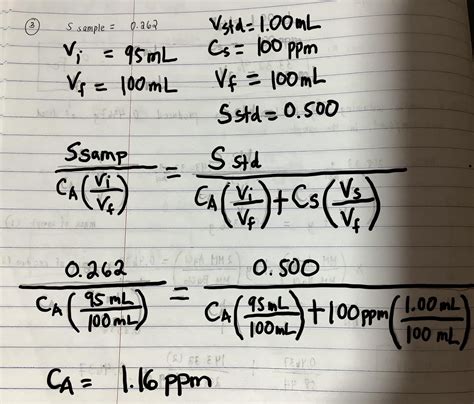 ③ S sample = 0.262 Vstd = 1.00 mL
Vi = 95 mL Cs = 100 ppm
Vf = 100 mL Vf = 100 mL
Sstd = 0.500
Ssamp / CA (Vi/Vf) = Sstd / CA (Vi/Vf) + Cs (Vs/Vf)
0.262 / CA (95 mL/100 mL) = 0.500 / CA (95 mL/100 mL) + 100 ppm (1.00 mL/100 mL)
CA = 1.16 ppm